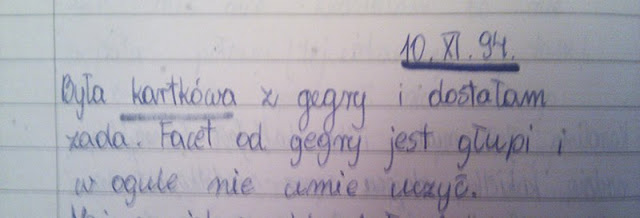 10. XI. 94.
Była kartkówa z gegry i dostałam
zada. Facet od gegry jest głupi i
w ogule nie umie uczyć.